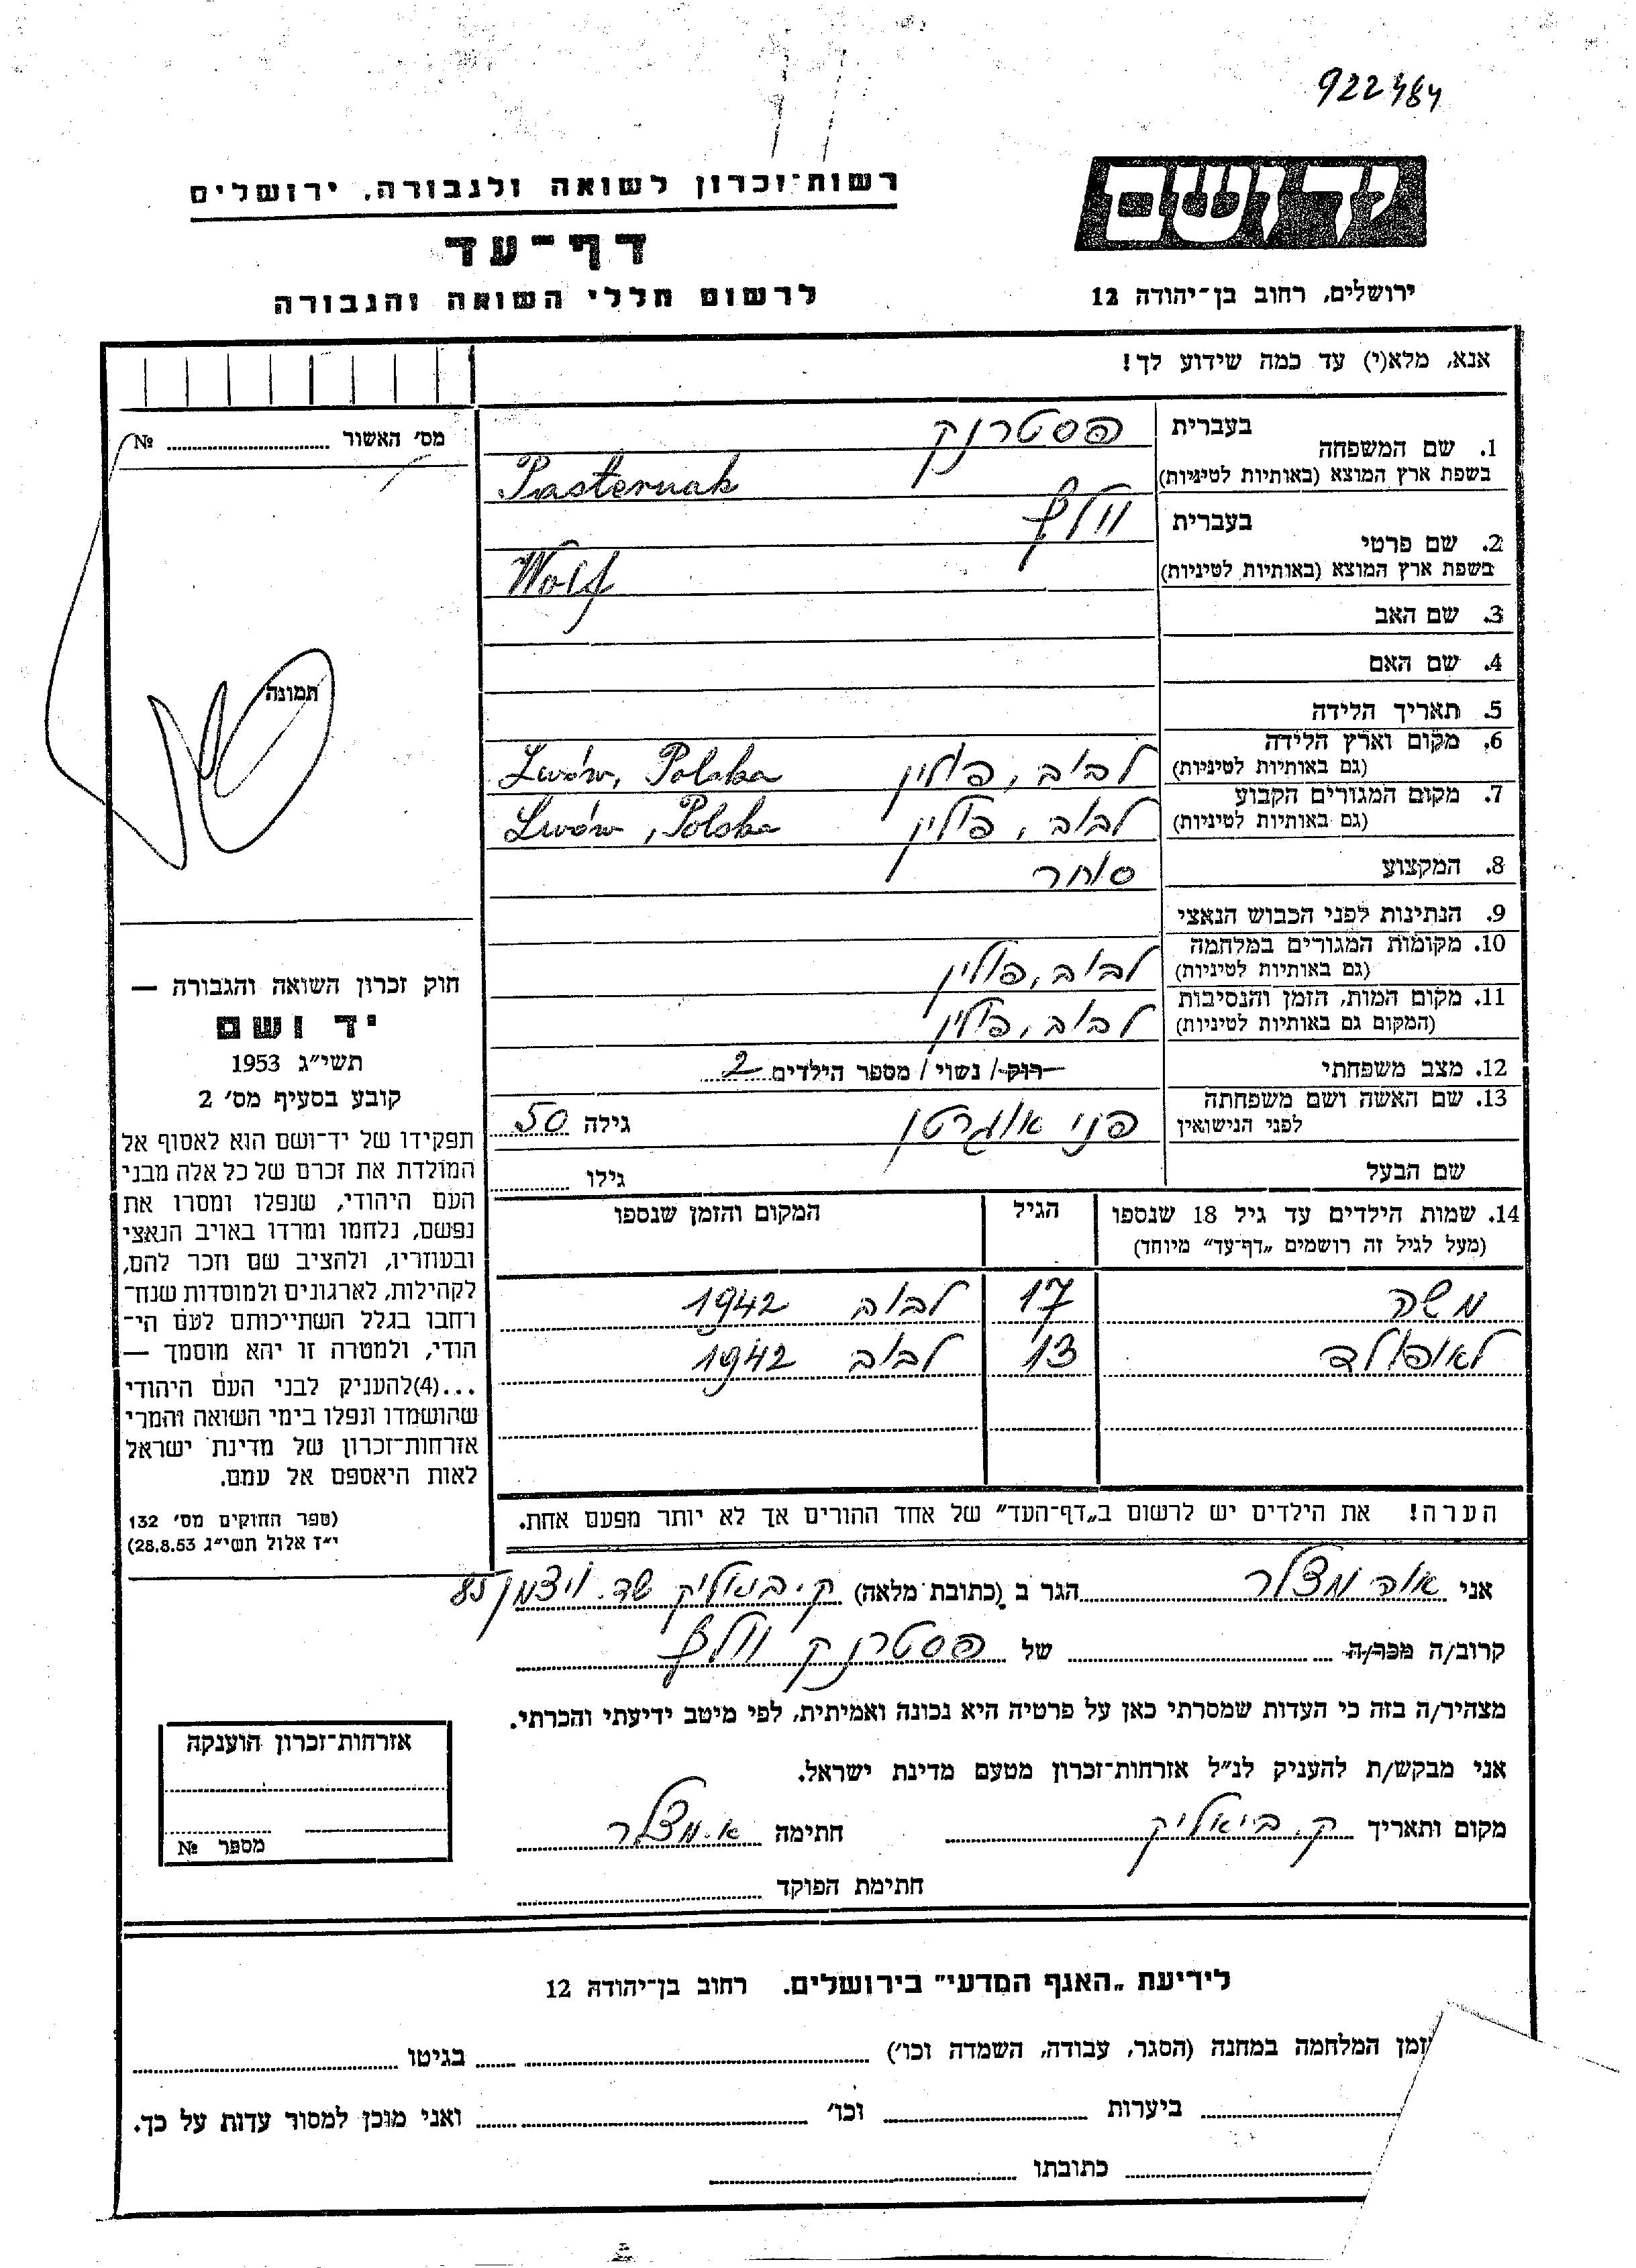 922484
יד ושם
רשות־זכרון לשואה ולגבורה, ירושלים
דף־עד
לרשום חללי השואה והגבורה
ירושלים, רחוב בן־יהודה 12
אנא, מלא(י) עד כמה שידוע לך!
מס׳ האשור № 
תמונה
1. שם המשפחה בעברית פסטרנק
בשפת ארץ המוצא (באותיות לטיניות) Pasternak
2. שם פרטי בעברית וולף
בשפת ארץ המוצא (באותיות לטיניות) Wolf
3. שם האב
4. שם האם
5. תאריך הלידה
6. מקום וארץ הלידה לבוב, פולין Lwów, Polska
(גם באותיות לטיניות)
7. מקום המגורים הקבוע לבוב, פולין Lwów, Polska
(גם באותיות לטיניות)
8. המקצוע סוחר
9. הנתינות לפני הכבוש הנאצי
10. מקומות המגורים במלחמה לבוב, פולין
(גם באותיות לטיניות)
11. מקום המות, הזמן והנסיבות לבוב, פולין
(המקום גם באותיות לטיניות)
12. מצב משפחתי רוק / נשוי / מספר הילדים 2
13. שם האשה ושם משפחתה פני אוגרטן גילה 50
לפני הנישואין
שם הבעל גילו
14. שמות הילדים עד גיל 18 שנספו הגיל המקום והזמן שנספו
(מעל לגיל זה רושמים „דף־עד” מיוחד)
משה 17 לבוב 1942
לאופולד 13 לבוב 1942
הערה! את הילדים יש לרשום ב„דף־העד” של אחד ההורים אך לא יותר מפעם אחת.
חוק זכרון השואה והגבורה —
יד ושם
תשי״ג 1953
קובע בסעיף מס׳ 2
תפקידו של יד־ושם הוא לאסוף אל
המולדת את זכרם של כל אלה מבני
העם היהודי, שנפלו ומסרו את
נפשם, נלחמו ומרדו באויב הנאצי
ובעוזריו, ולהציב שם וזכר להם,
לקהילות, לארגונים ולמוסדות שנח־
רחבו בגלל השתייכותם לעם הי־
הודי, ולמטרה זו יהא מוסמך —
...(4)להעניק לבני העם היהודי
שהושמדו ונפלו בימי השואה והמרי
אזרחות־זכרון של מדינת ישראל
לאות היאספם אל עמם.
(ספר החוקים מס׳ 132
י״ז אלול תשי״ג 28.8.53)
אני אוה מצלר הגר ב (כתובת מלאה) ק. ביאליק שד. ויצמן 85
קרוב/ה מכר/ה של פסטרנק וולף
מצהיר/ה בזה כי העדות שמסרתי כאן על פרטיה היא נכונה ואמיתית, לפי מיטב ידיעתי והכרתי.
אני מבקש/ת להעניק לנ״ל אזרחות־זכרון מטעם מדינת ישראל.
מקום ותאריך ק. ביאליק חתימה א. מצלר
חתימת הפוקד
אזרחות־זכרון הוענקה
מספר №
לידיעת „האגף המדעי” בירושלים. רחוב בן־יהודה 12
זמן המלחמה במחנה (הסגר, עבודה, השמדה וכו׳) בגיטו
ביערות וכו׳ ואני מוכן למסור עדות על כך.
כתובתו